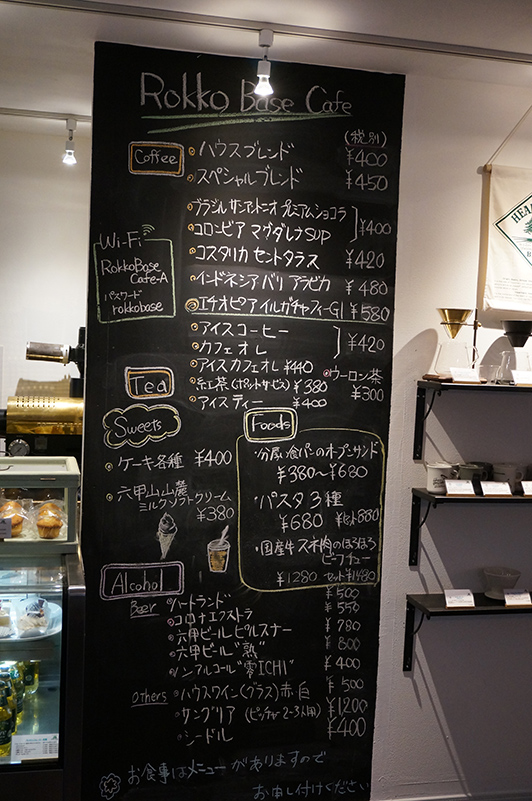 Rokko Base Cafe
(税別)
Coffee
ハウスブレンド ¥400
スペシャルブレンド ¥450
ブラジル サンアントニオ プレミアムショコラ
コロンビア マグダレナSUP ¥400
コスタリカ セントタラス ¥420
インドネシア バリ アラビカ ¥480
エチオピア イルガチャフィーG1 ¥580
アイスコーヒー
カフェオレ ¥420
アイスカフェオレ ¥440
Wi-Fi
RokkoBase
Cafe-A
パスワード
rokkobase
Tea
紅茶(ポットサービス) ¥380
アイスティー ¥400
ウーロン茶
¥300
Sweets
ケーキ各種 ¥400
六甲山山麓
ミルクソフトクリーム
¥380
Foods
分厚い食パンのオープンサンド
¥380〜¥680
パスタ3種
¥680 セット880
国産牛スネ肉のほろほろ
ビーフシチュー
¥1280 セット¥1480
Alcohol
Beer
ハートランド ¥500
コロナエクストラ ¥550
六甲ビールピルスナー ¥780
六甲ビール"熟" ¥800
ノンアルコール"零ICHI" ¥400
others
ハウスワイン(グラス)赤・白 ¥500
サングリア (ピッチャー2-3人用) ¥1200
シードル ¥400
お食事はメニューがありますので
お申し付けください